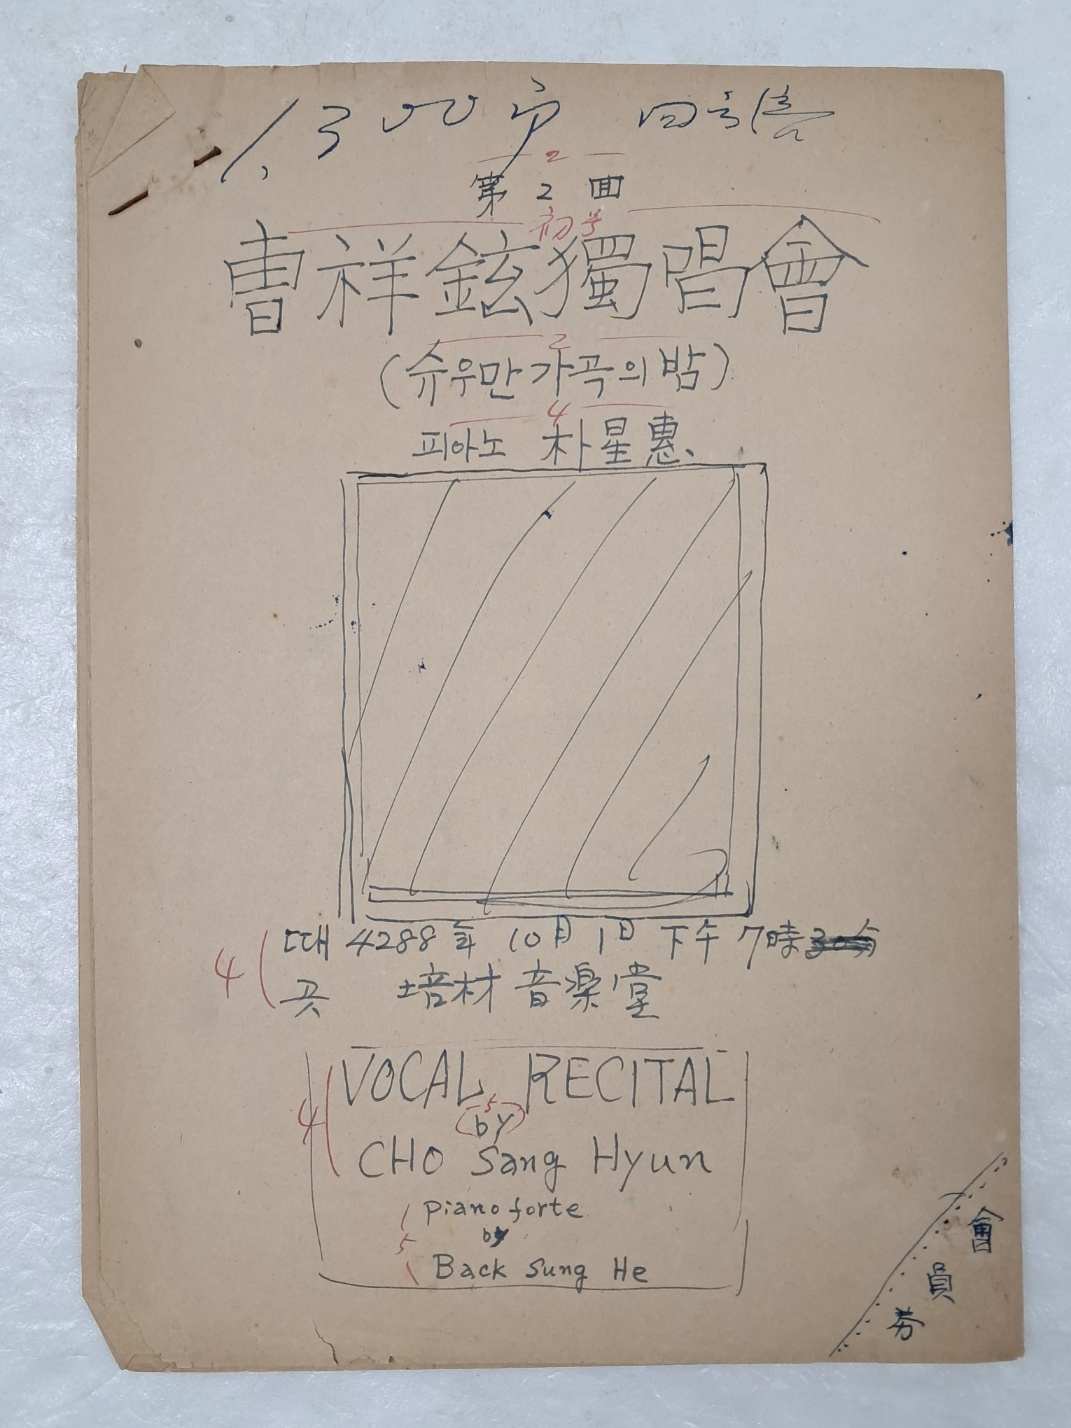 1,300
2
第2回
初号
曺祥鉉獨唱會
2
(슈우만 가곡의 밤)
4
피아노 朴星惠
4 때 4288年 10月 1日 下午 7時 30分
곳 培材 音楽堂
4 VOCAL RECITAL
5
by
CHO Sang Hyun
pianoforte
by
5
Back Sung He
會員券